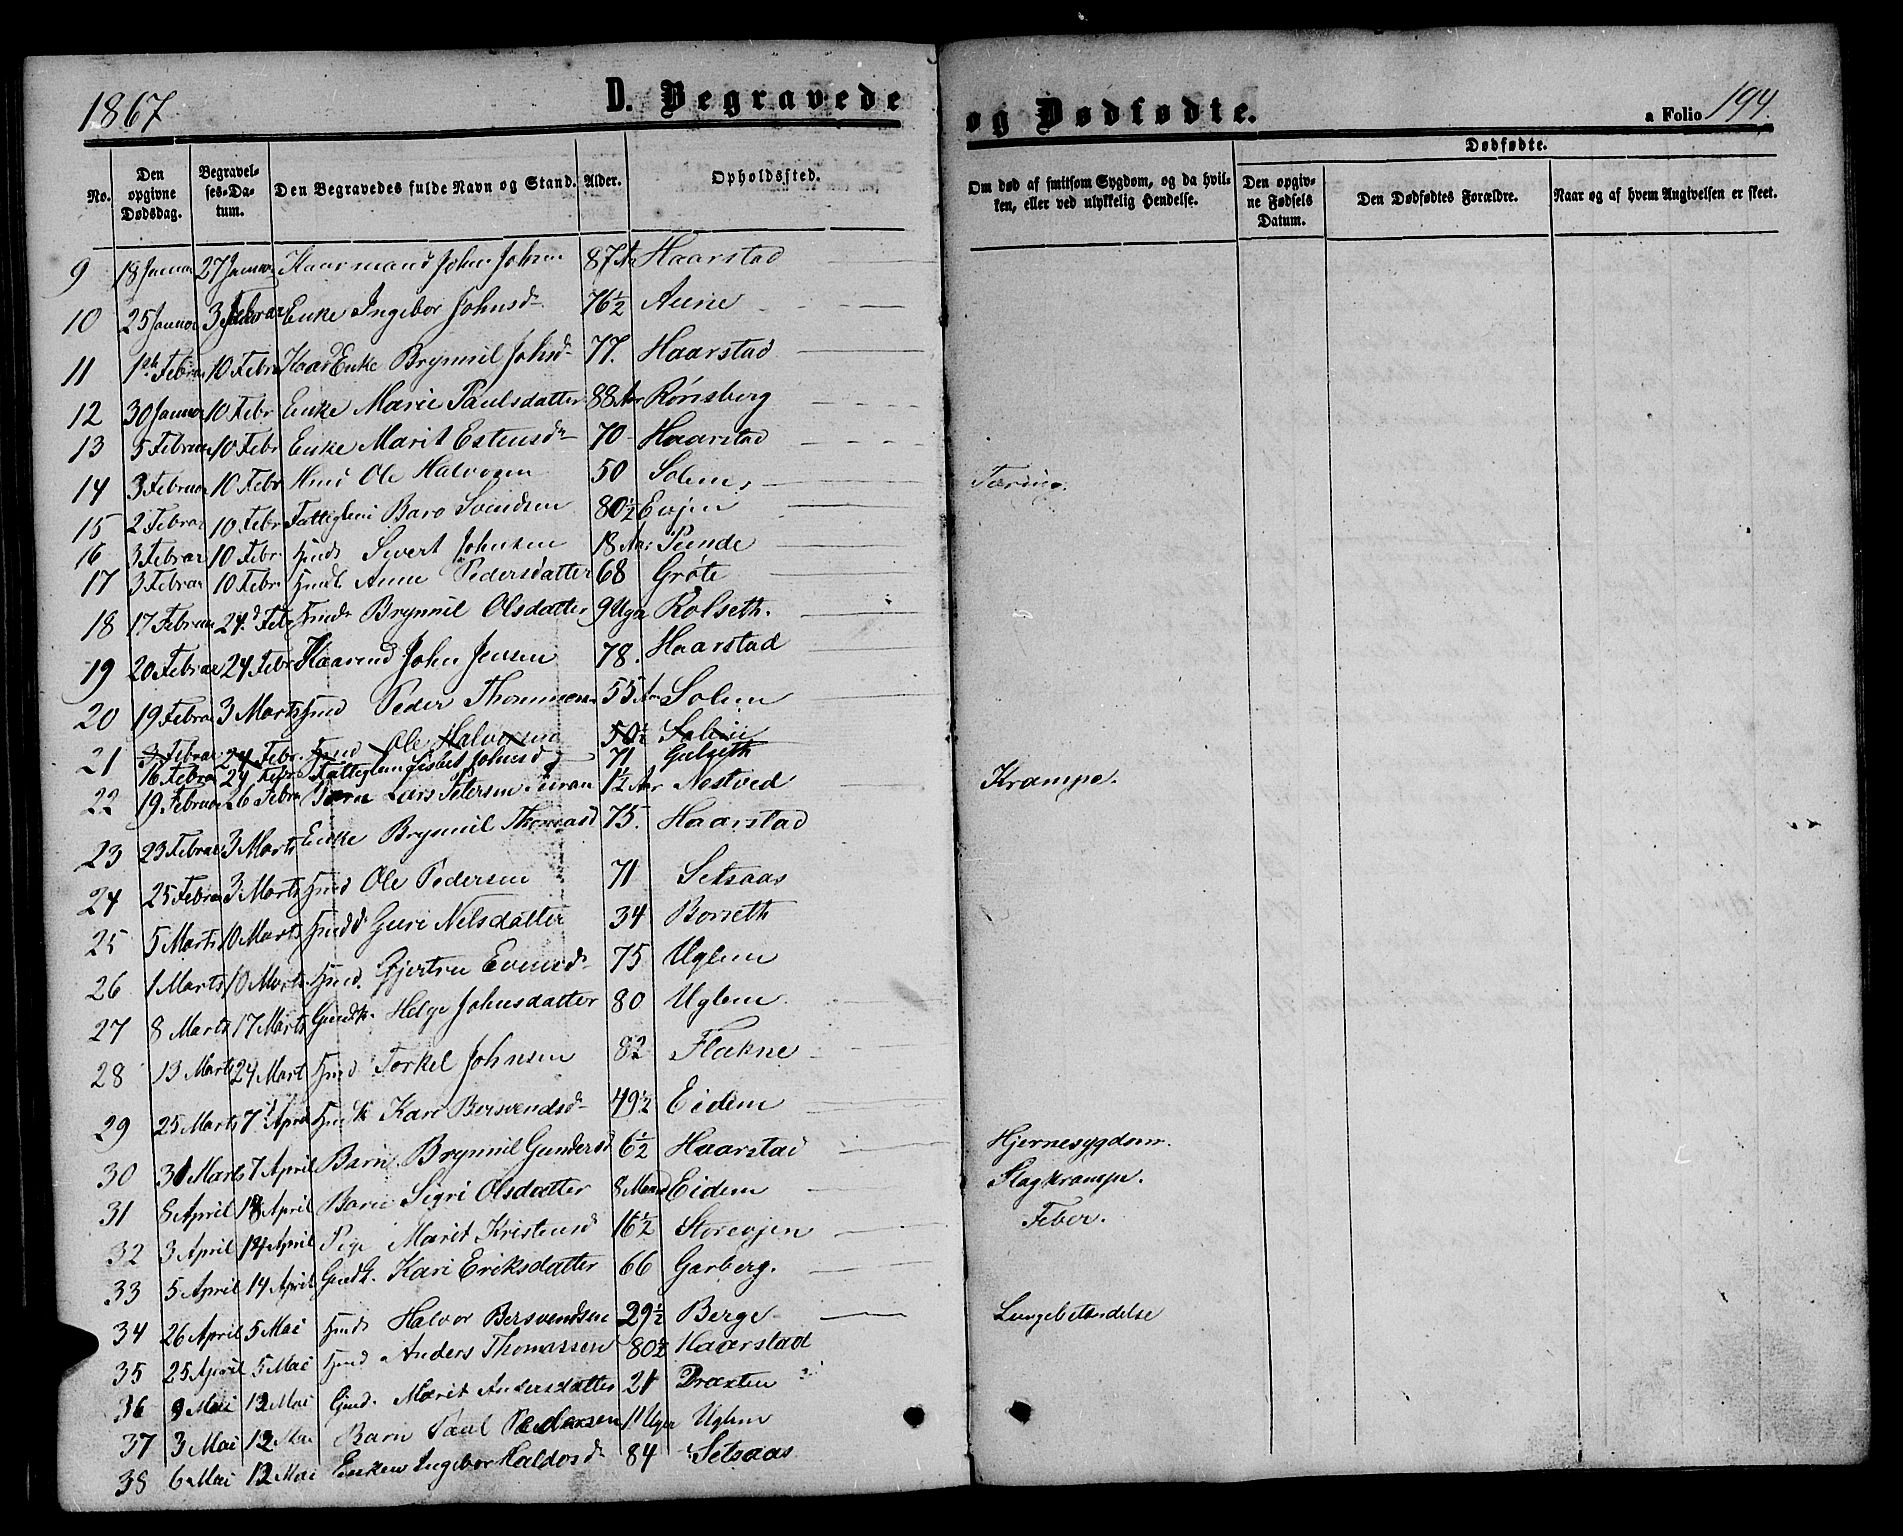 1867
D. Begravede og Dødfødte.
a Folio 194.
No.
Den opgivne Dødsdag.
Begravelses-Datum.
Den Begravedes fulde Navn og Stand.
Alder.
Opholdssted.
Om død af smitsom Sygdom, og da hvilken, eller ved ulykkelig Hendelse.
Dødfødte.
Den opgivne Fødsels Datum.
Den Dødfødtes Forældre.
Naar og af hvem Angivelsen er skeet.
9 18 Januar 27 Januar Kaarmand John Johsen 87 Aar Haarstad
10 25 Januar 3 Februar Enke Ingebor Johnsd. 76½ Aune
11 1ste Februar 10 Febr Kaar Enke Brynnil Johsd. 77. Haarstad
12 30 Januar 10 Febr Enke Marie Paulsdatter 88 Aar Rönsberg
13 5 Februar 10 Febr Enke Marit Estensd. 70 Haarstad
14 3 Februar 10 Febr Hmd Ole Halvorsen 50 Solem Tæring.
15 2 Febrar 10 Febr Fattiglem Baro Svendsen 80½ Evjen
16 3 Febrar 10 Febr. Sivert Johnsen 18 Aar
17 3 Febrar 10 Febr Anne Pedersdatter 68 Gröte
18 17 Februar 24d Febr Brynnil Olsdatter 9 Uger Rolseth.
19 20 Febrar 24 Febr Kaarmd John Jensen 78. Haarstad
20 19 Febrar 3 Marts Hmd Peder Thommesen 55 Aar Solem
21 3 Febrar 24 Febr. Hmd Ole Halvorsen 50½ Solem
16 Febrar 24 Febr Fattiglem Sisel Johnsd 71 Gulseth
22 19 Februar 26 Febrar Barn Lars Petersen 1½ Aar Nestved Krampe.
23 23 Febrar 3 Marts Enke Brynnil Thomasd 75. Haarstad
24 25 Febrar 3 Marts Hmd Ole Pedersen 71 Setsaas
25 5 Marts 10 Marts Guri Nelsdatter 34 Borseth
26 1 Marts 10 Marts Gjertru Evensd. 75 Uglem
27 8 Marts 17 Marts Helge Johnsdatter 80 Uglem
28 13 Marts 24 Mart Hmd Torkel Johnsen 82 Flakne
29 25 Marts 7d April Kari Bersvendsd. 49½ Eidem
30 31 Marts 7 April Barn Brynnil Gundersd 6½ Haarstad Hjernesygdom.
31 8 April 18 April Barn Sigri Olsdatter 8 Maad Eidem Slagkrampe.
32 3 April 14 April Pige Marit Kristensd 16½ Storevjen Feber.
33 5 April 14 April Kari Eriksdatter 66 Garberg.
34 26 April 5 Mai Halvor Bersvendsen 29½ Berge Lungebetændelse
35 25 April 5 Mai Hmd Anders Thomassen 80½ Haarstad
36 9 Mai 12 Mai Marit Andersdatter 21 Draxten
37 3 Mai 12 Mai Barn Paul Pedersen 11 Uger Uglem
38 6 Mai 12 Mai Enken Ingebor Haldosd. 84 Setsaas